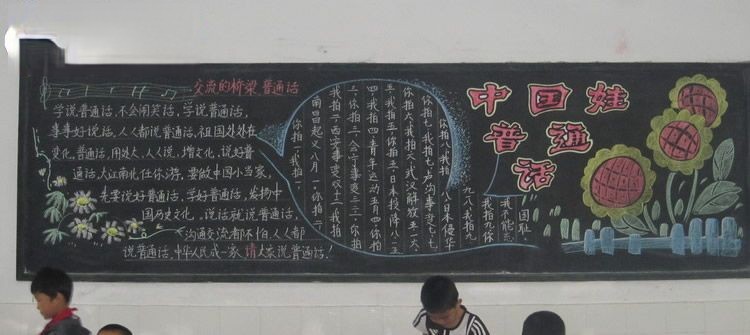 交流的桥梁 普通话
学说普通话,不会闹笑话,学说普通话,
事事好说话,人人都说普通话,祖国处处在
变化,普通话,用处大,人人说,增文化,说好普
通话,大江南北任你游,要做中国小当家,
先要说好普通话,学好普通话,发扬中
国历史文化,说话就说普通话,
沟通交流都不怕,人人都
说普通话,中华人民成一家请大家说普通话!
你拍一我拍一,
南昌起义八月一,你拍二
我拍二西安事变双十二我拍
三你拍三会宁事变三三,你拍
四我拍四青年运动五月四你拍
五我拍五你拍五日本投降八一五
你拍六我拍六武汉解放五一六,
你拍七我拍七卢沟事变七七
你拍八我拍八日本侵华
九八我拍九
我拍九你
我不能忘
国耻.
中国娃
普通
话